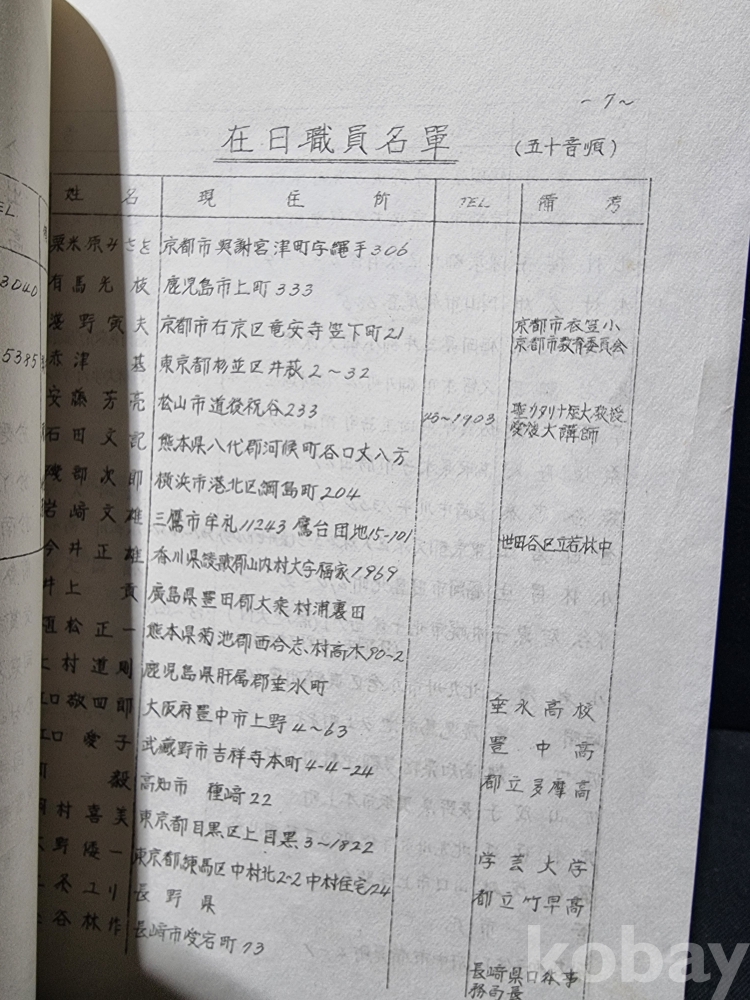 -7~
在日職員名單 (五十音順)
姓名 現住所 TEL 備考
粟米原みさを 京都市與謝宮津町字縄手306
有馬光枝 鹿児島市上町333
淺野寅夫 京都市右京区竜安寺笠下町21 京都市衣笠小
京都市教育委員会
赤津基 東京都杉並区井萩2~32
安藤芳亮 松山市道後祝谷233 45~1903 聖カタリナ短大教授
愛媛大講師
石田文記 熊本県八代郡河俣町谷口丈八方
磯部次郎 横浜市港北区綱島町204
岩崎文雄 三鷹市牟礼11243 鷹台団地15-101 世田谷区立若林中
今井正雄 香川県綾歌郡山内村大字福家1969
井上貢 廣島県豊田郡大乗村浦裏田
植松正一 熊本県菊池郡西合志村高木90-2
上村道則 鹿児島県肝属郡垂水町 垂水高校
江口敬四郎 大阪府豊中市上野4~63 豊中高
江口愛子 武蔵野市吉祥寺本町4-4-24 都立多摩高
毅 高知市 種崎22
岡村喜美 東京都目黒区上目黒3~1822 学芸大学
野倭一 東京都練馬区中村北2-2中村住宅24 都立竹早高
ユリ 長野県
谷林作 長崎市愛宕町73 長崎県
務局長
3040
5385
kobay